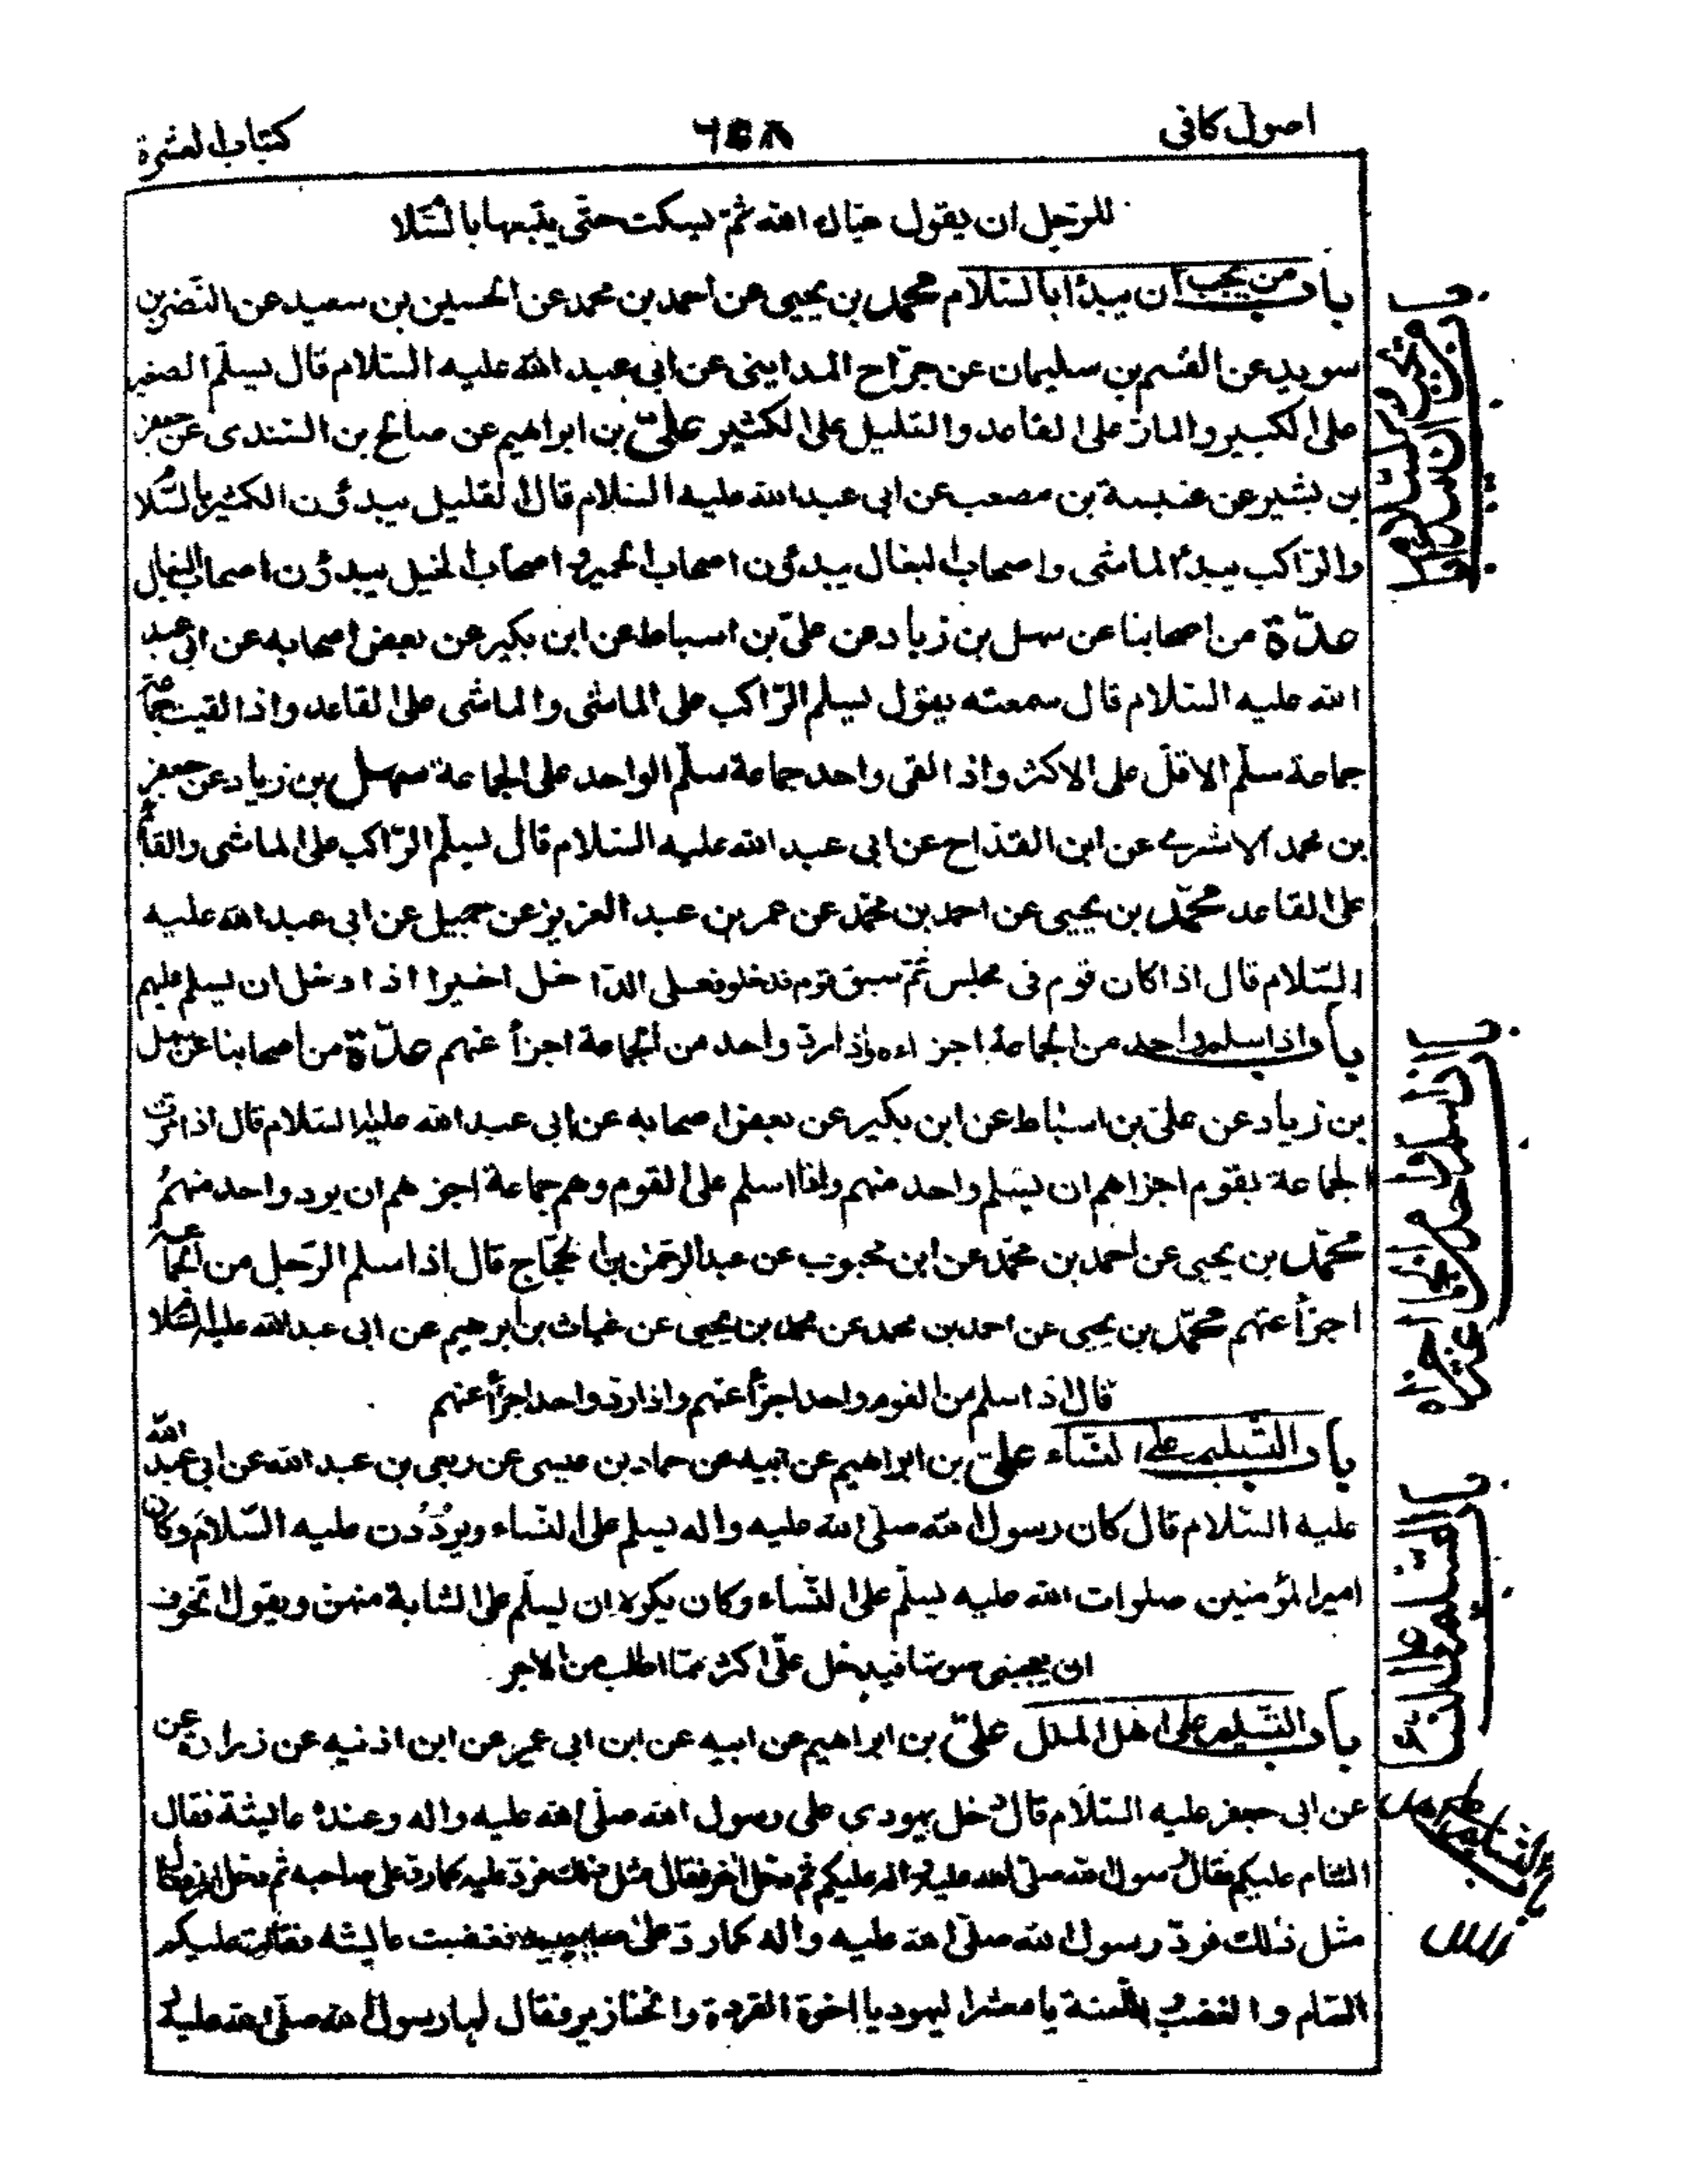 اصول كافى
٦٥٨
كتاب العشرة
للرّجل ان يقول حيّاك الله ثمّ يسكت حتّى يتبعها بالسّلا
باب من يجب ان يبدأ بالسّلام محمد بن يحيى عن احمد بن محمد عن الحسين بن سعيد عن النضر بن
سويد عن القسم بن سليمان عن جرّاح المدايني عن ابى عبد الله عليه السّلام قال يسلّم الصغير
على الكبير والمارّ على القاعد والقليل على الكثير علىّ بن ابراهيم عن صالح بن السّندى عن جعفر
بن بشير عن عنبسة بن مصعب عن ابى عبد الله عليه السّلام قال القليل يبدؤن الكثير بالسّلا
والرّاكب يبدأ الماشى واصحاب البغال يبدؤن اصحاب الحمير واصحاب الخيل يبدؤن اصحاب البغال
عدّة من اصحابنا عن سهل بن زياد عن علىّ بن اسباط عن ابن بكير عن بعض اصحابه عن ابى عبد
الله عليه السّلام قال سمعته يقول يسلم الرّاكب على الماشى والماشى على القاعد واذا لقيت جماعة
جماعة سلّم الاقلّ على الاكثر واذا لقى واحد جماعة سلّم الواحد على الجماعة سهل بن زياد عن جعفر
بن محمد الاشعرى عن ابن القدّاح عن ابى عبد الله عليه السّلام قال يسلّم الرّاكب على الماشى والقائم
على القاعد محمّد بن يحيى عن احمد بن محمّد عن عمر بن عبد العزيز عن جميل عن ابى عبد الله عليه
السّلام قال اذا كان قوم فى مجلس ثمّ سبق قوم فدخلوا فعلى الدّاخل اخيرا اذا دخل ان يسلم عليهم
باب اذا سلم واحد من الجماعة اجزاءه واذا ردّ واحد من الجماعة اجزأ عنهم عدّة من اصحابنا عن سهل
بن زياد عن علىّ بن اسباط عن ابن بكير عن بعض اصحابه عن ابى عبد الله عليه السّلام قال اذا مرّت
الجماعة بقوم اجزاهم ان يسلم واحد منهم واذا سلم على القوم وهم جماعة اجزهم ان يرد واحد منهم
محمّد بن يحيى عن احمد بن محمّد عن ابن محبوب عن عبد الرّحمن بن الحجّاج قال اذا سلم الرّجل من الجماعة
اجزأ عنهم محمّد بن يحيى عن احمد بن محمد عن محمد بن يحيى عن غياث بن ابرهيم عن ابى عبد الله عليه السّلا
قال اذا سلم من القوم واحد اجزأ عنهم واذا ردّ واحد اجزأ عنهم
باب التّسليم على النّساء علىّ بن ابراهيم عن ابيه عن حماد بن عيسى عن ربعى بن عبد الله عن ابى عبد الله
عليه السّلام قال كان رسول الله صلّى الله عليه واله يسلم على النّساء ويردُدن عليه السّلام وكان
امير المؤمنين صلوات الله عليه يسلّم على النّساء وكان يكره ان يسلّم على الشابة منهنّ ويقول اتخوف
ان يعجبنى صوتها فيدخل علىّ اكثر ممّا اطلب من الاجر
باب التّسليم على اهل الملل علىّ بن ابراهيم عن ابيه عن ابن ابى عمير عن ابن اذنيه عن زرارة عن
عن ابى جعفر عليه السّلام قال دخل يهودى على رسول الله صلّى الله عليه واله وعنده عايشة فقال
السّام عليكم فقال رسول الله صلّى الله عليه واله عليكم ثم دخل اخر فقال مثل ذلك فردّ عليه كما ردّ على صاحبه ثم دخل اخر فقال
مثل ذلك فردّ رسول الله صلّى الله عليه واله كما ردّ على صاحبيه فغضبت عايشه فقالت عليكم
السّام والغضب واللّعنة يا معشر اليهود يا اخوة القردة والخنازير فقال لها رسول الله صلّى الله عليه